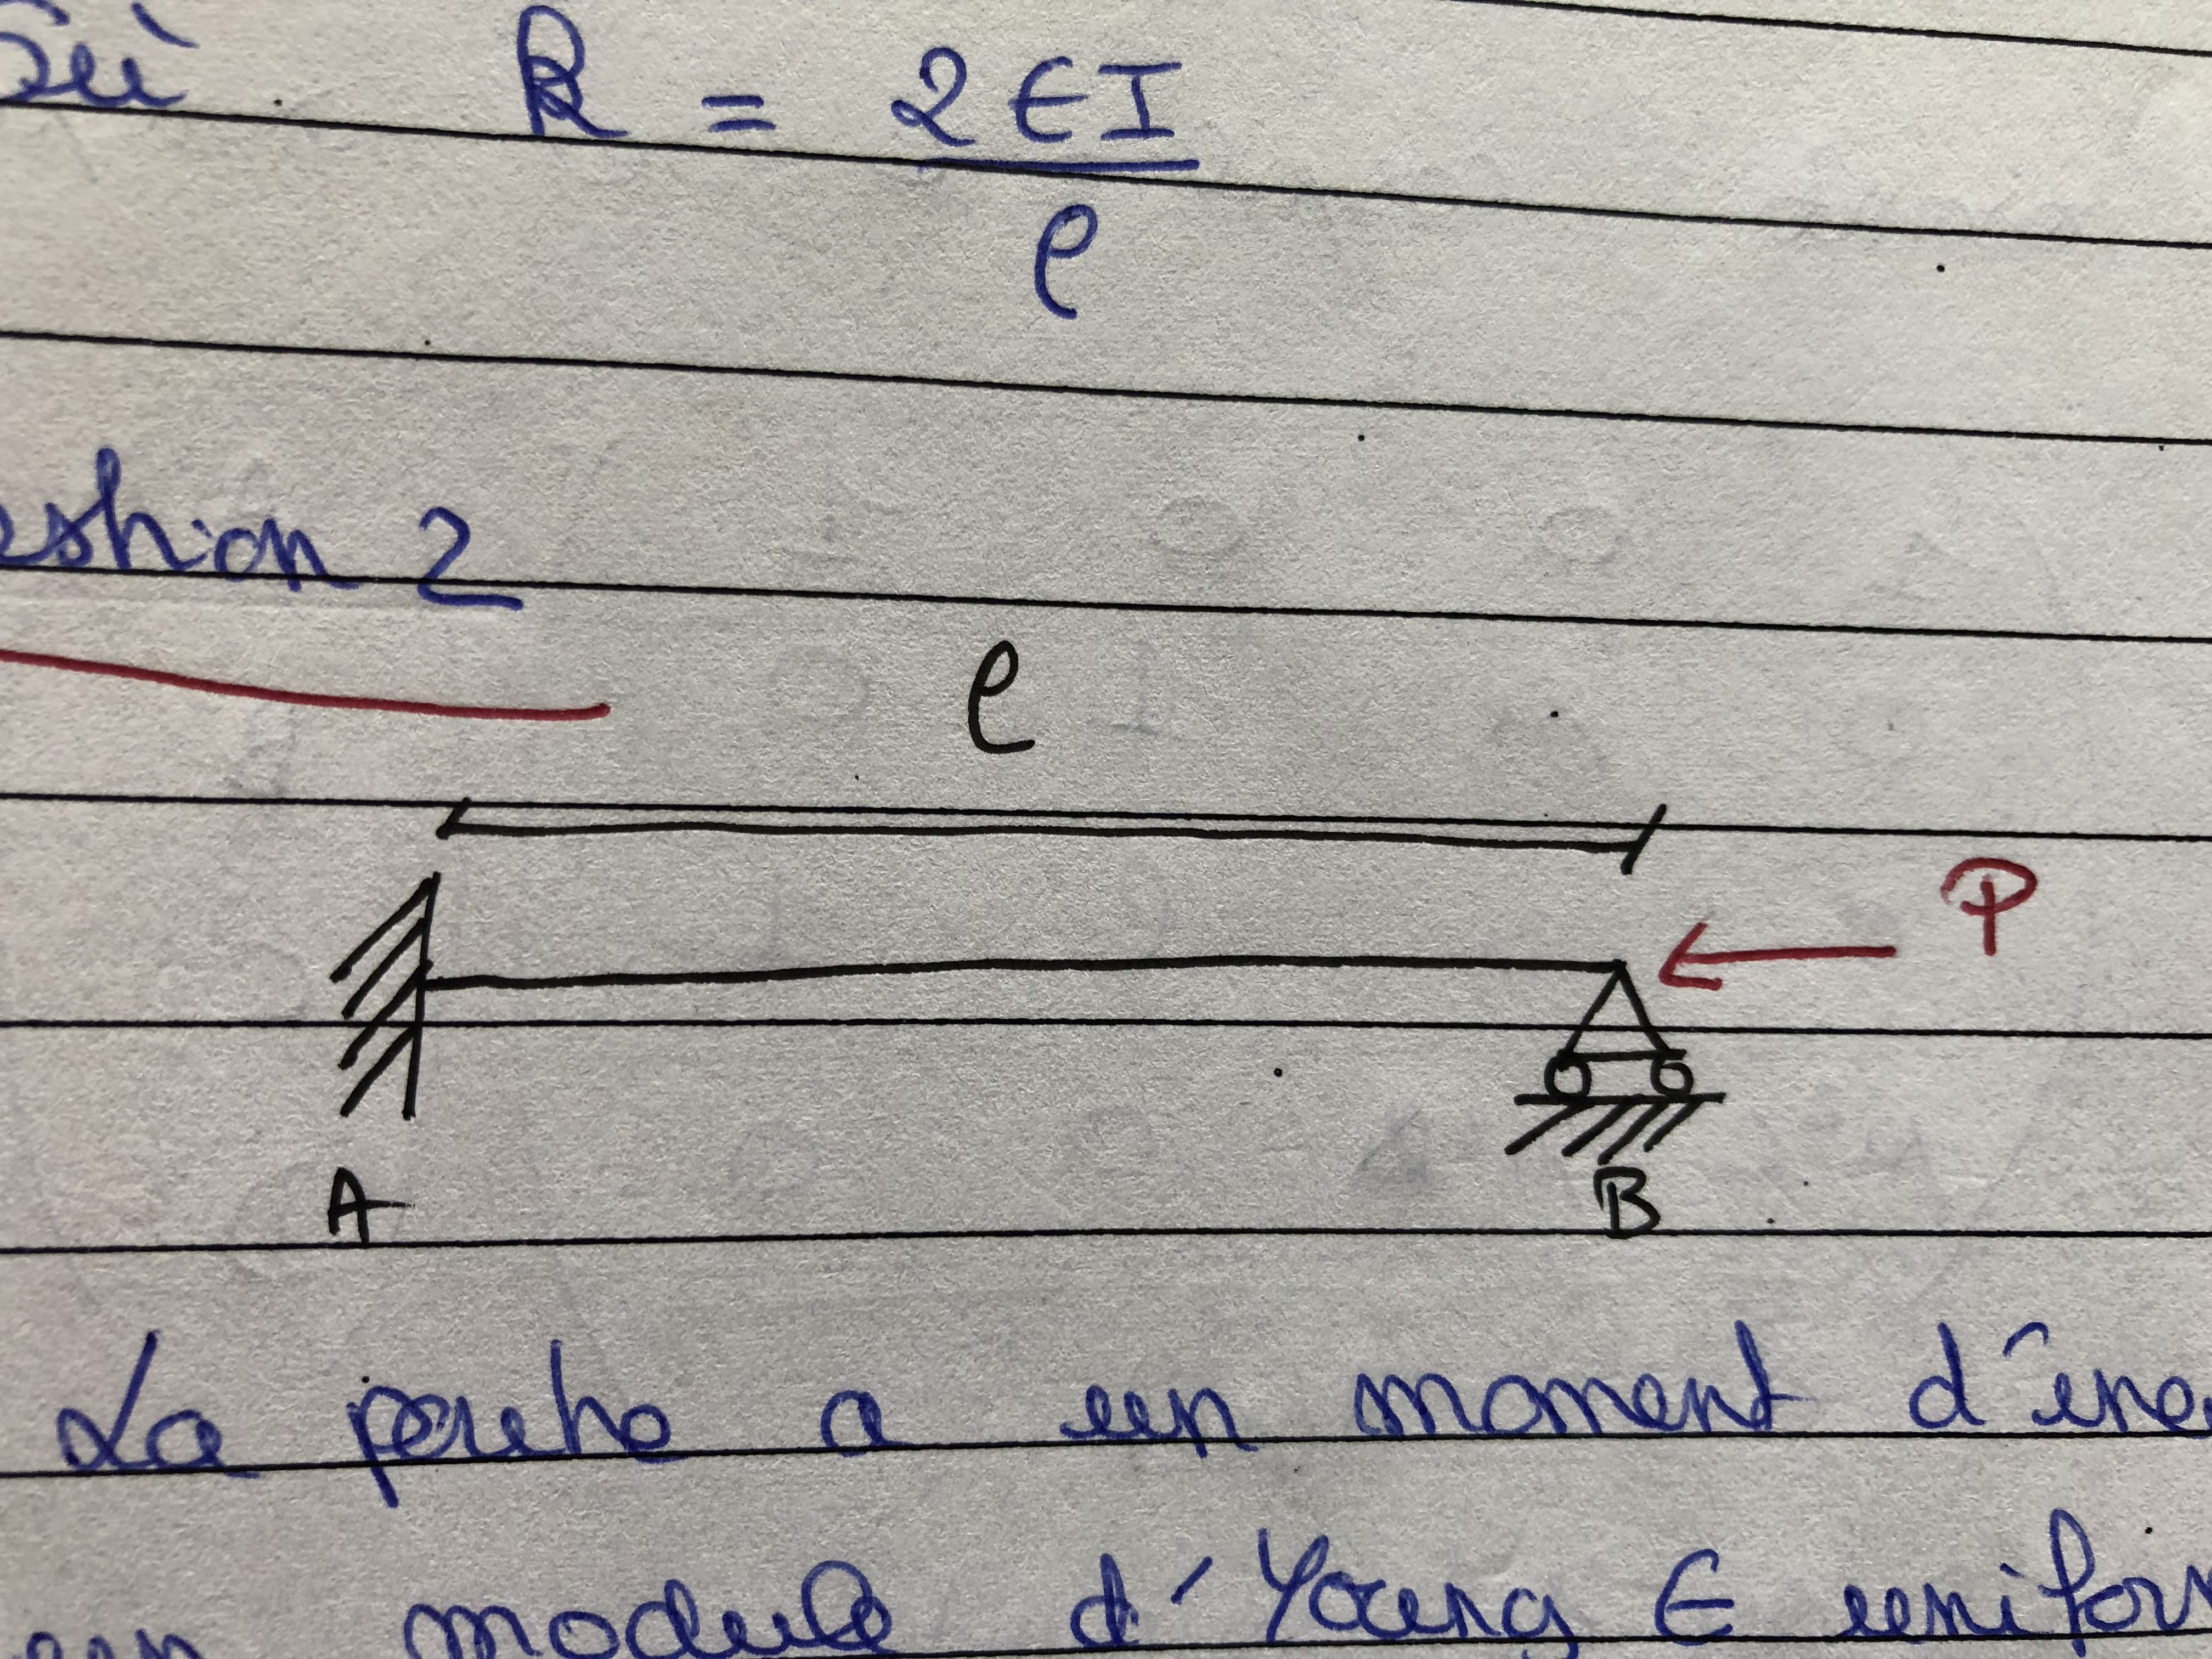 R = 2EI
l
estion 2
l
P
A B
La poutre a un moment d'ine
un module d'Young E unifor